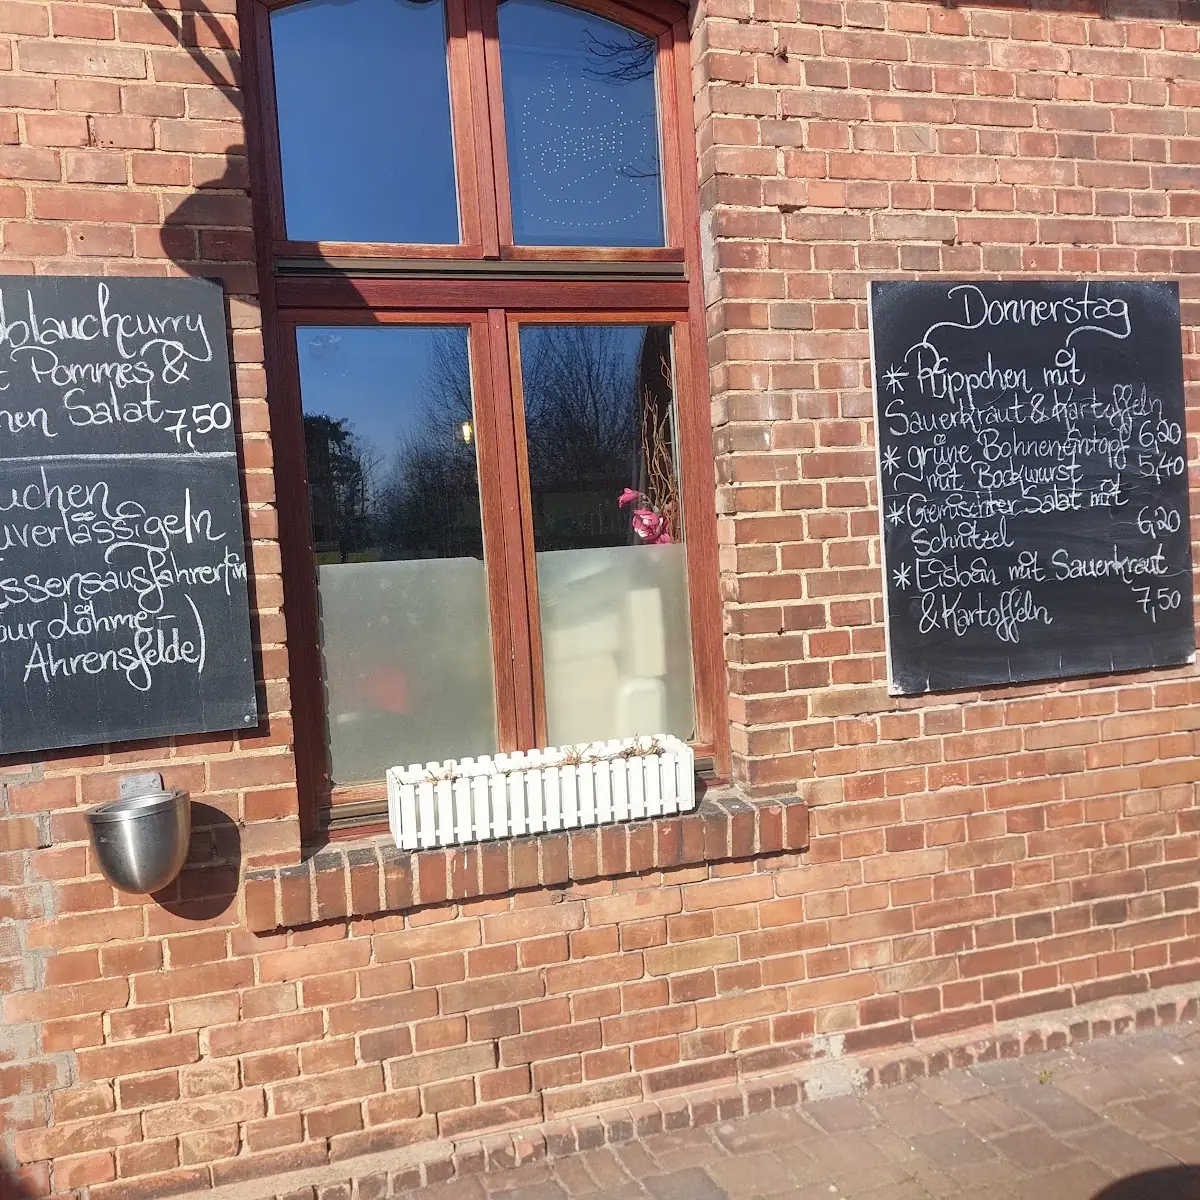 blauchcurry
Pommes &
Salat 7,50
uchen
uverlässige/n
ssensausfahrer/in
our Löhme-
Ahrensfelde)
Open
Donnerstag
* Rippchen mit
Sauerkraut & Kartoffeln
6,20
* grüne Bohneneintopf
mit Bockwurst 5,40
* Gemischter Salat mit
Schnitzel 6,20
* Eisbein mit Sauerkraut
& Kartoffeln 7,50